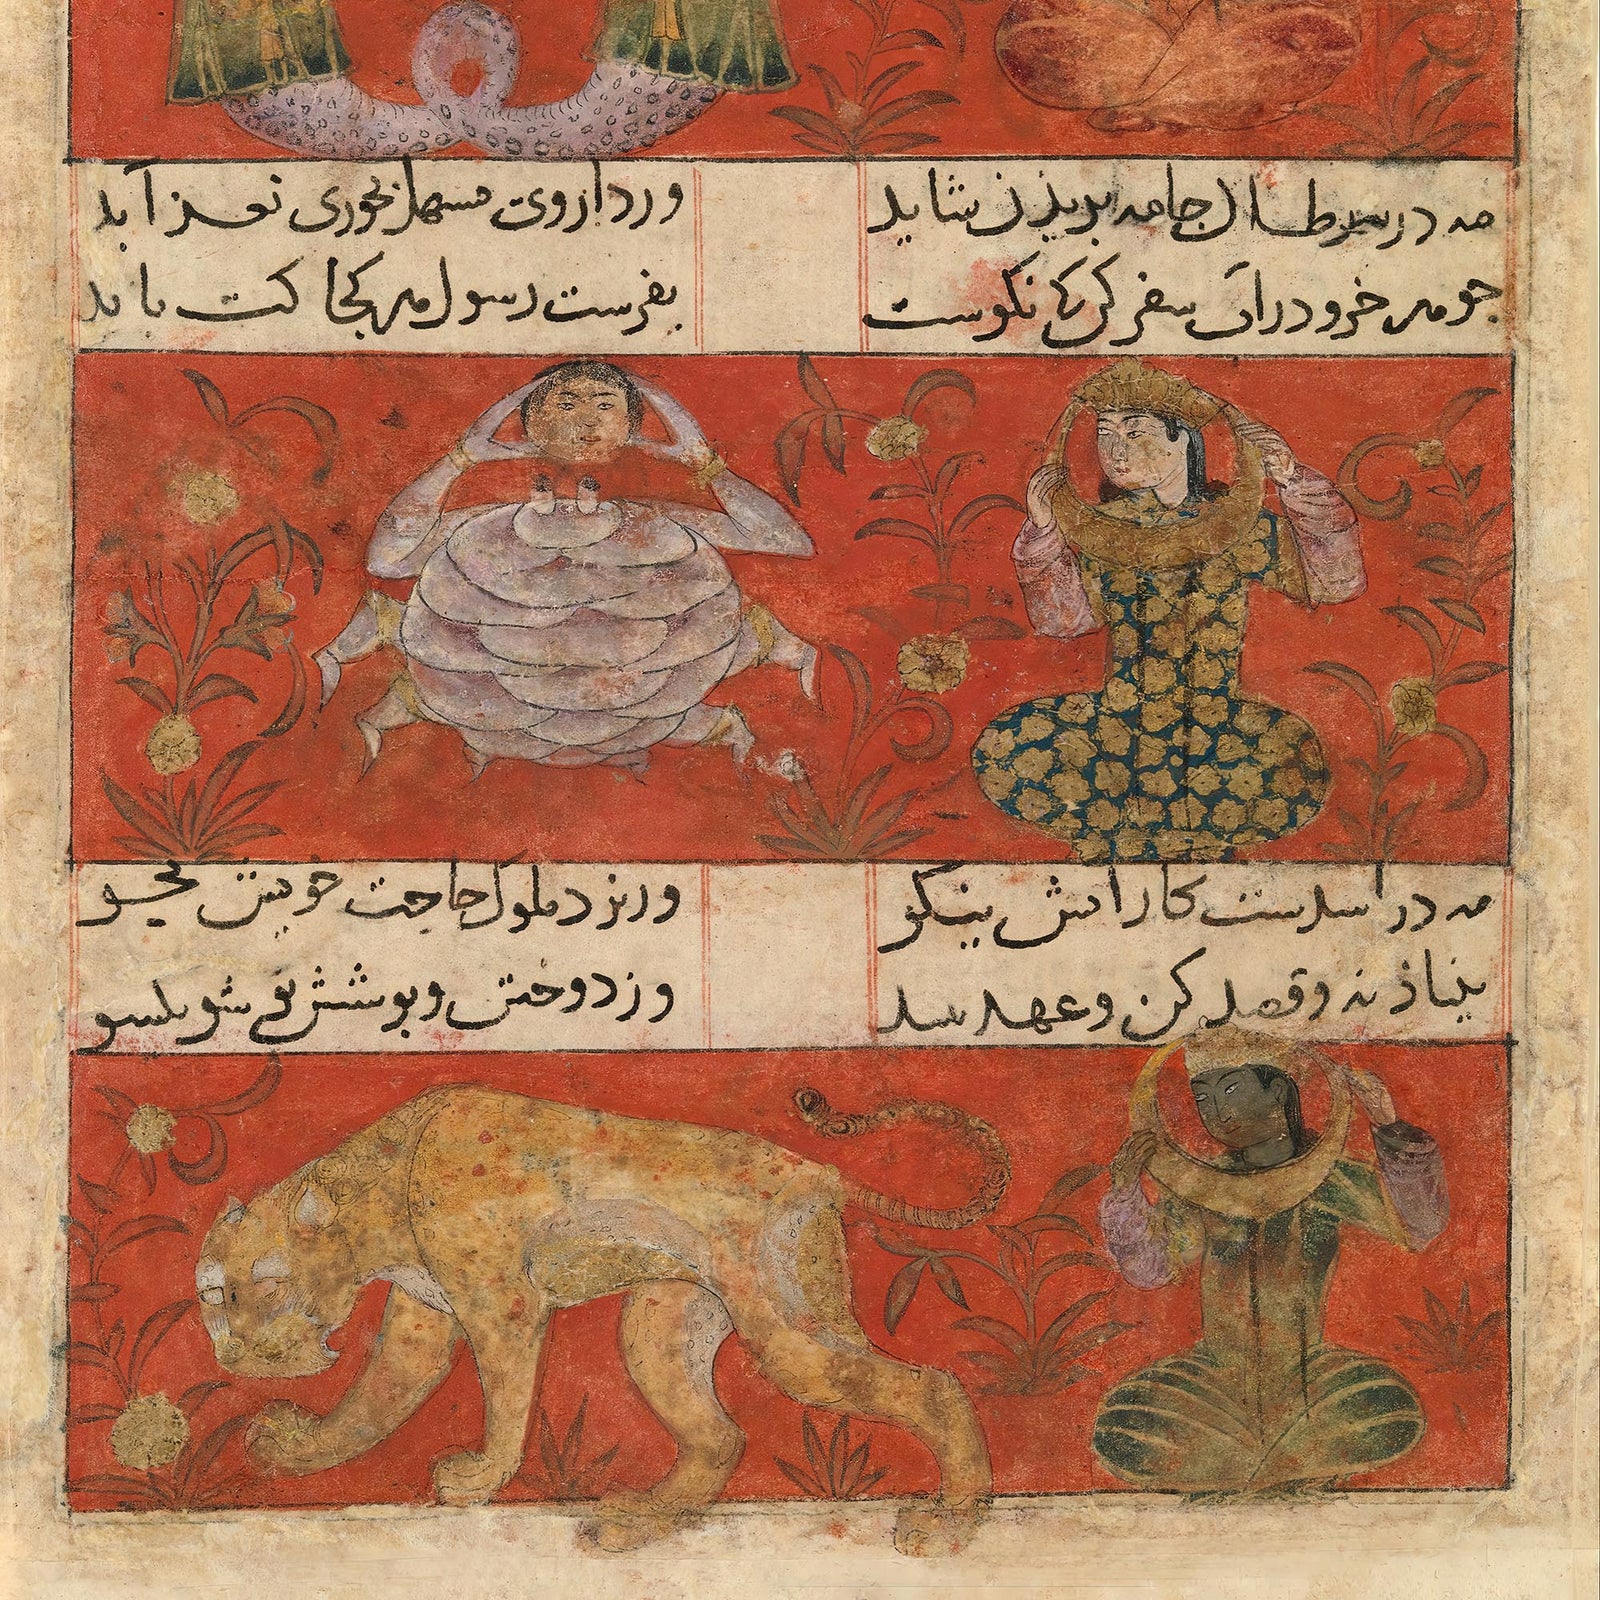 مه در سرطان جامه بریدن شاید
ور داروی مسهل خوری نغز آید
چو مه خرو در آن سفر کن نکوست
بفرست رسول مر کجا کت باید
مه در اسدست کار آتش نیکو
ور نزد ملوک حاجت خویش بجو
بنیاد نه و قصد کن و عهد
وز دوختن و پوشش نو